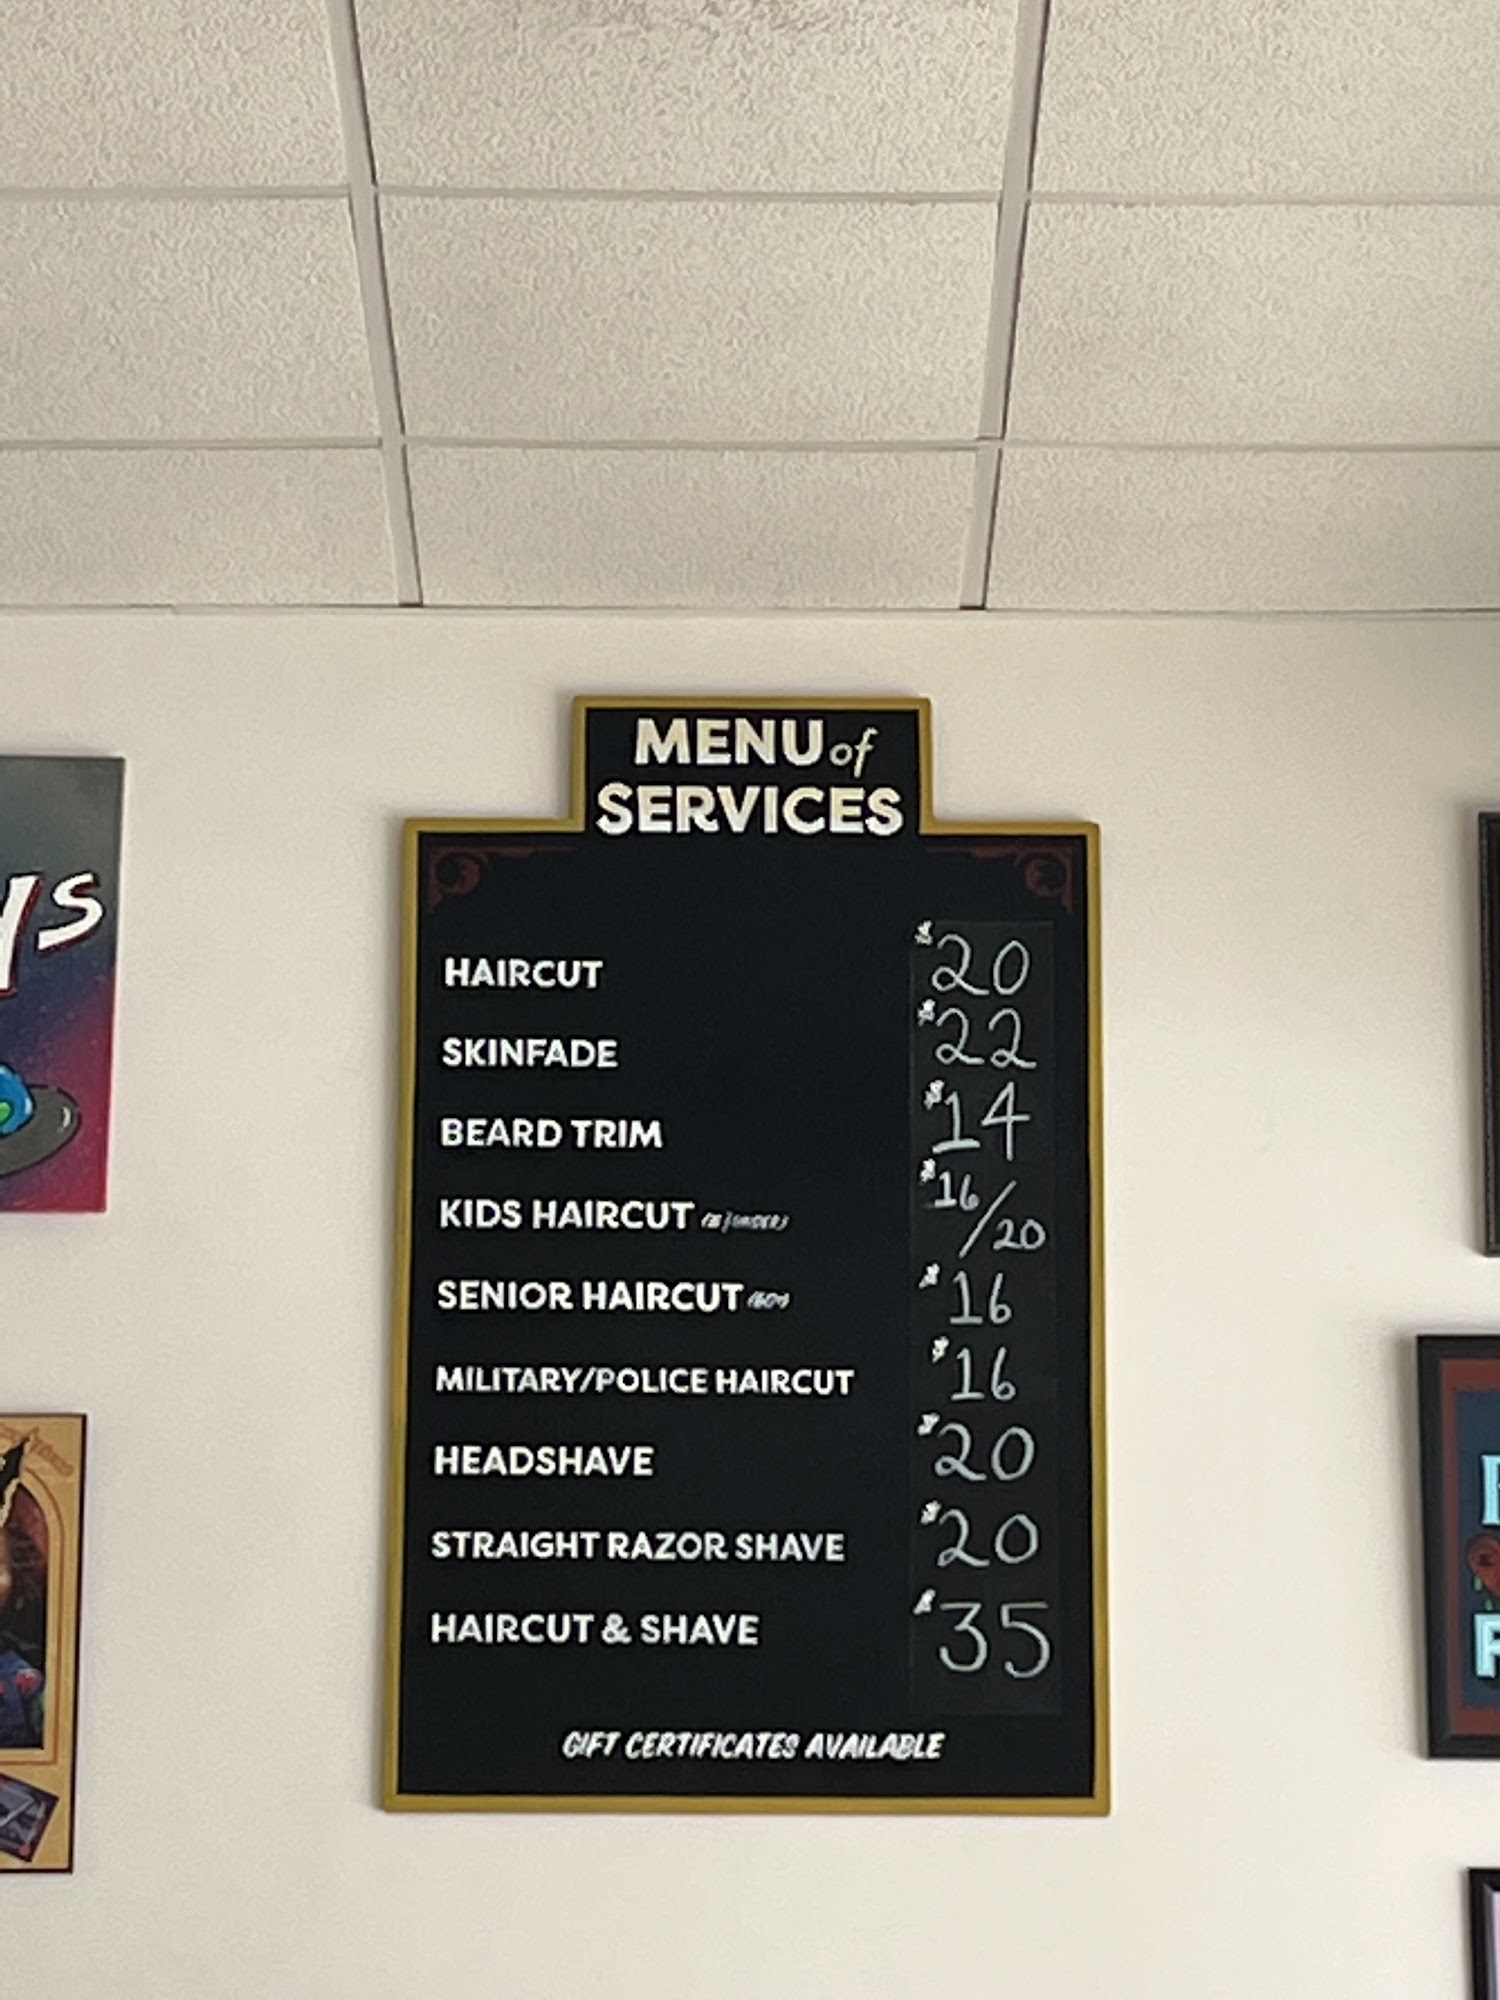 MENU of
SERVICES
HAIRCUT $20
SKINFADE $22
BEARD TRIM $14
KIDS HAIRCUT $16/20
SENIOR HAIRCUT $16
MILITARY/POLICE HAIRCUT $16
HEADSHAVE $20
STRAIGHT RAZOR SHAVE $20
HAIRCUT & SHAVE $35
GIFT CERTIFICATES AVAILABLE